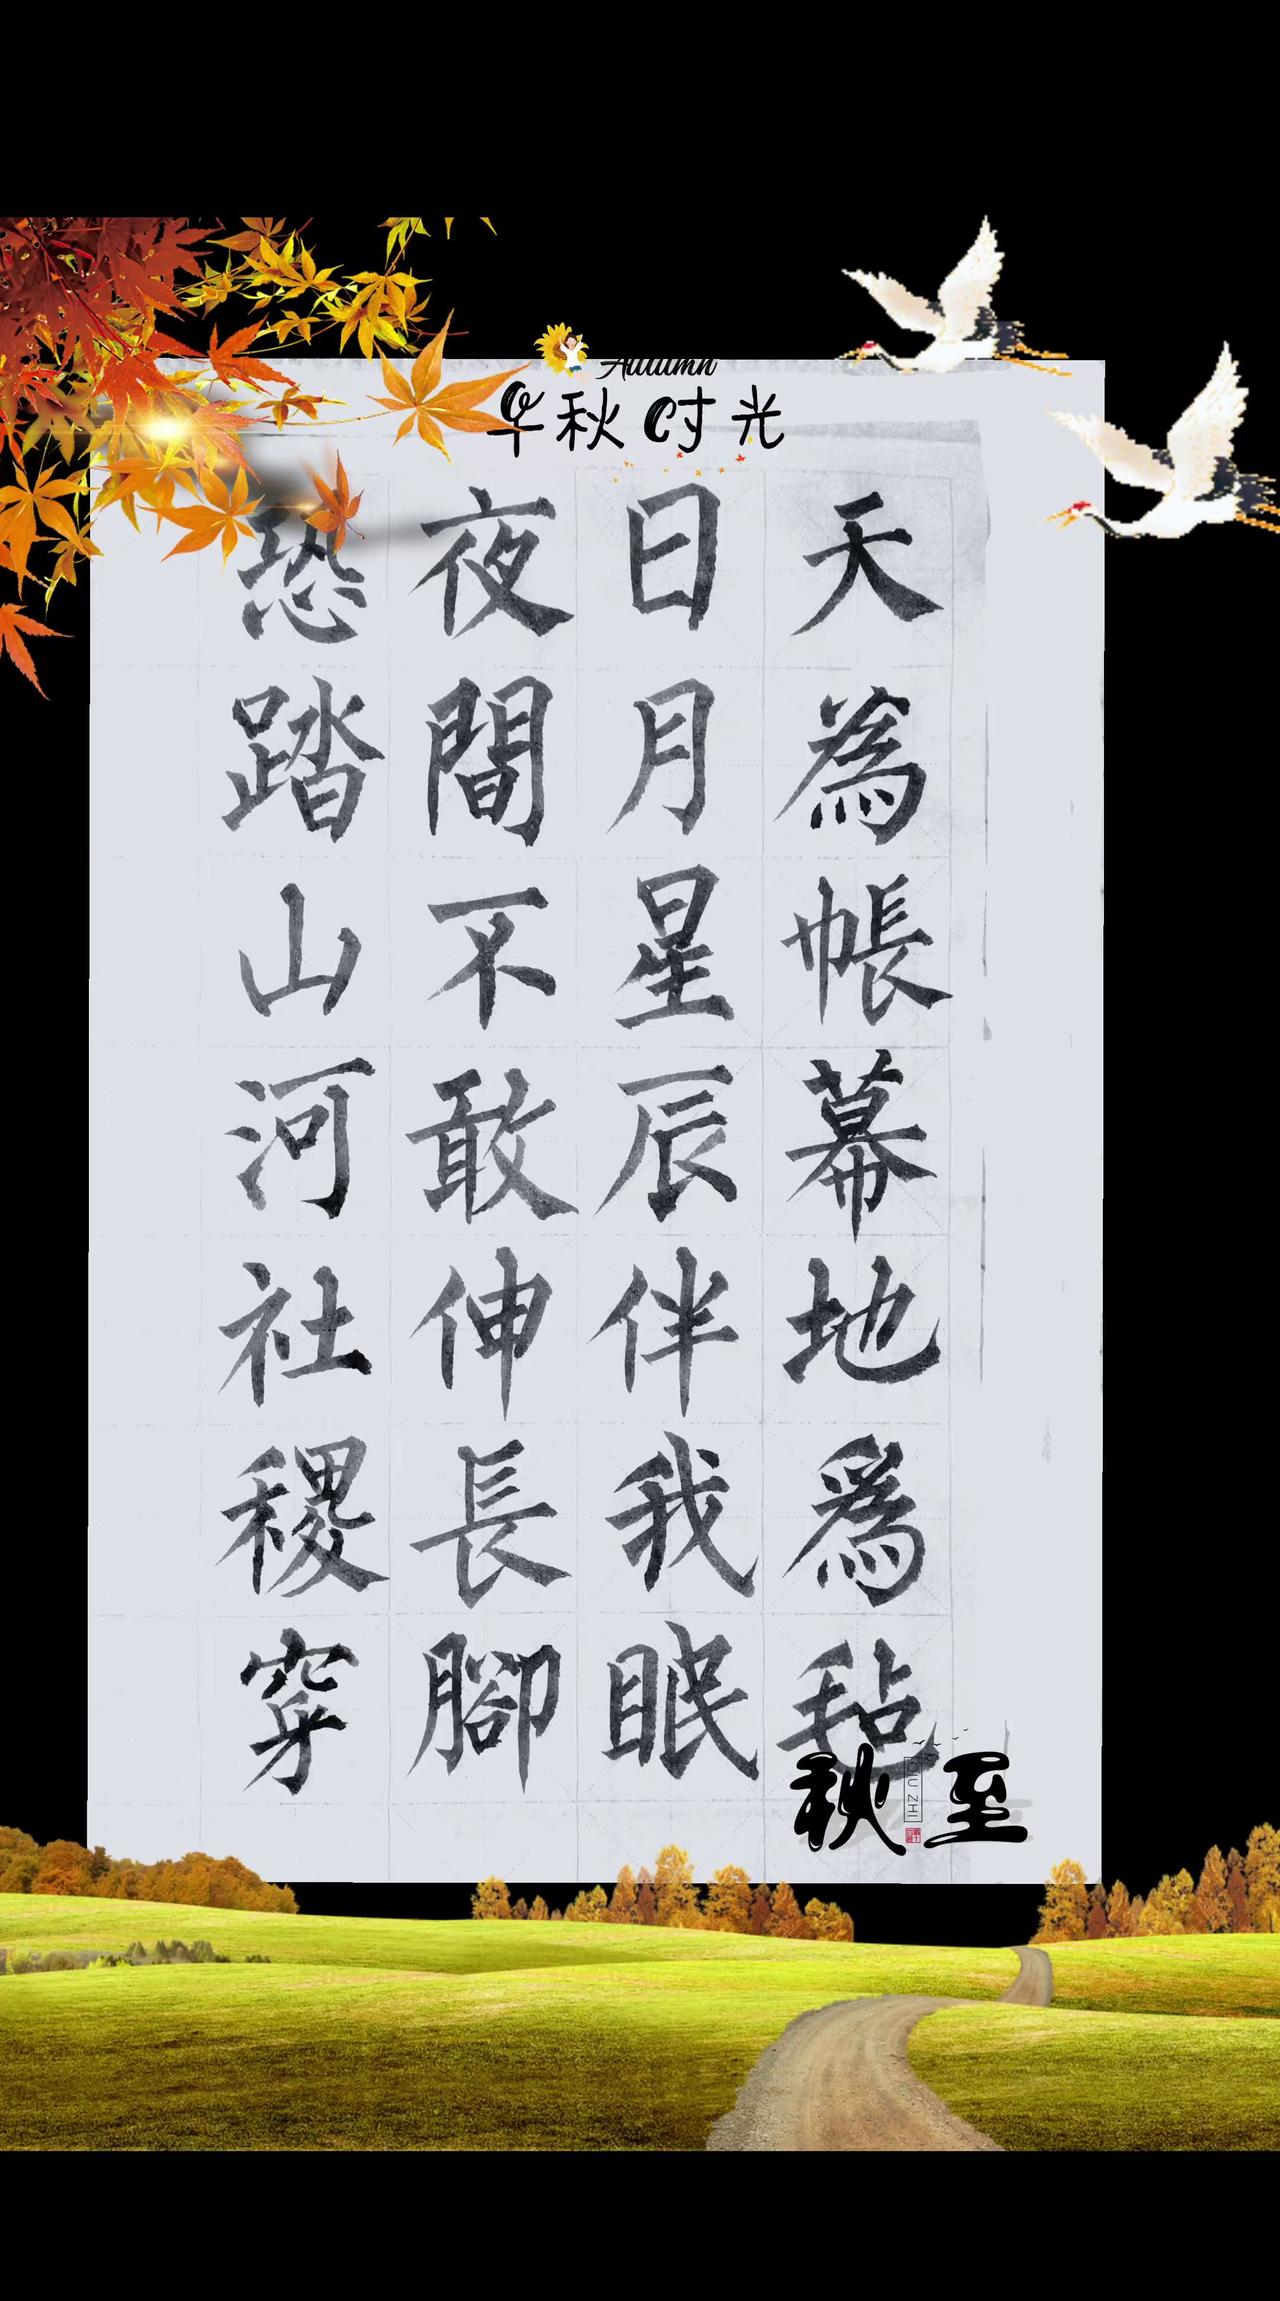 Autumn
早秋时光
天為帳幕地爲毡
日月星辰伴我眠
夜間不敢伸長腳
恐踏山河社稷穿
秋至
QIU ZHI